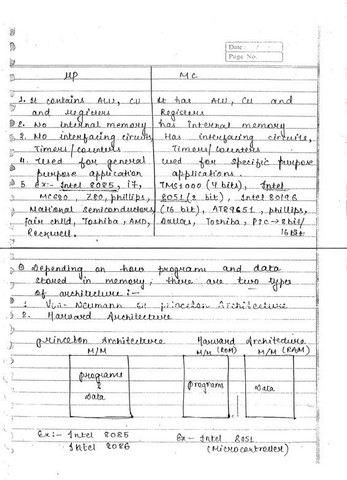 Date :
Page No.
MP
MC
1. It contains ALU, CU and registers
It has ALU, CU and Registers
2. No internal memory
has internal memory
3. No interfacing circuits, Timers/counters
Has interfacing circuits, Timers/counters
4. Used for general purpose application
used for specific purpose applications.
5. ex:- Intel 8085, i7,
TMS1000 (4 bits), Intel
Z80, phillips,
8051 (8 bit), Intel 80196
National Semiconductors,
(16 bit), AT89651, phillips,
fair child, Toshiba, AMD,
Dallas, Toshiba, PIC → 8bit/
Rockwell.
16bit
Depending on how program and data
stored in memory, there are two types
of architecture :-
1. Von-Neumann or princeton Architecture
2. Harward Architecture
princeton Architecture
Harward Architecture
M/M
M/M (ROM)
M/M (RAM)
programs
&
Data
program
Data
Ex:- Intel 8085
Ex- Intel 8051
Intel 8086
(Microcontroller)